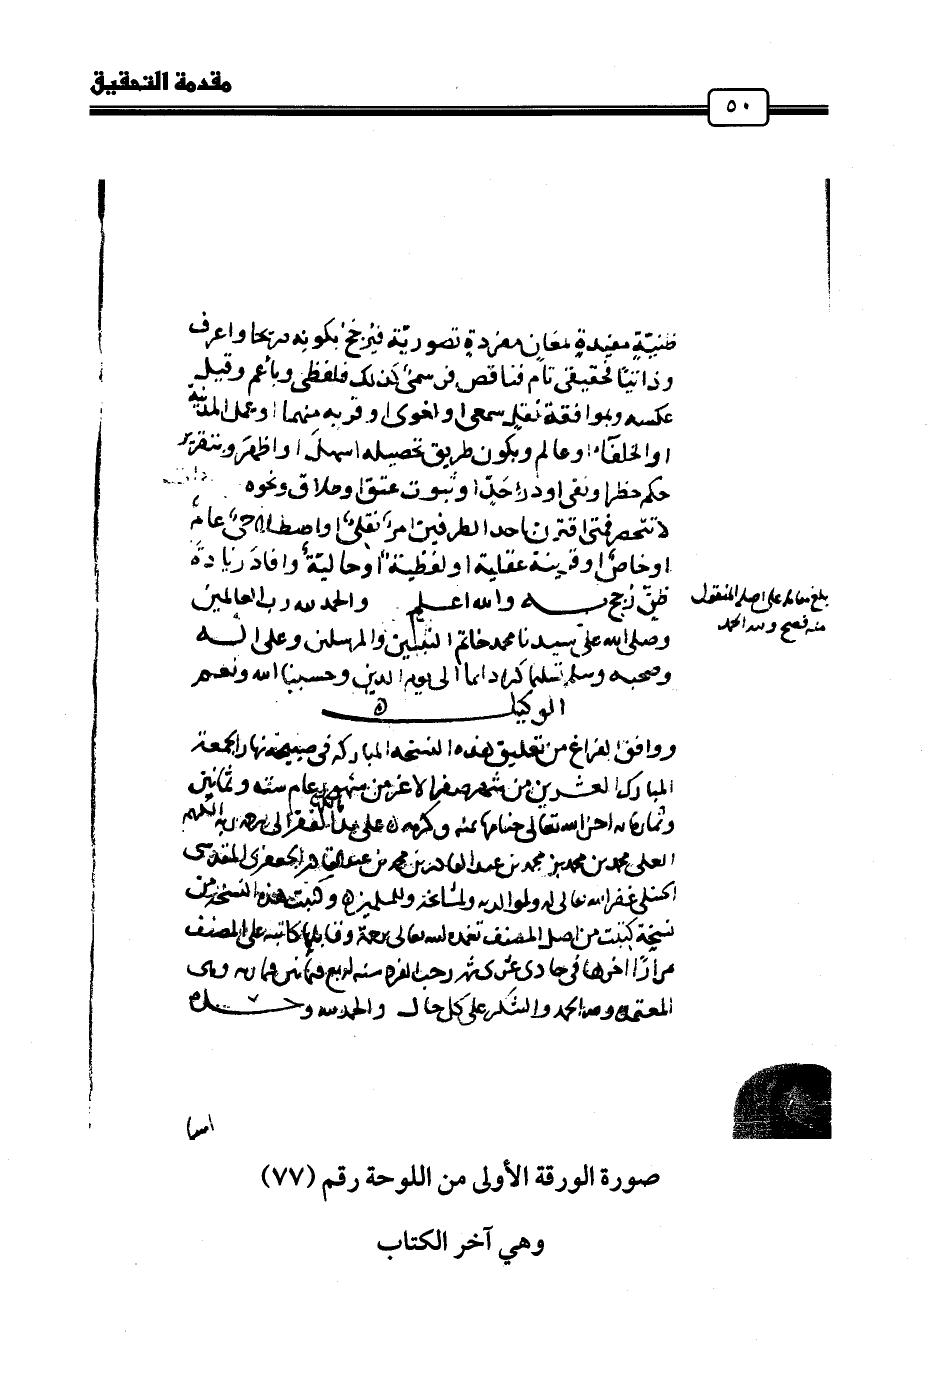 مقدمة التحقيق
٥٠
ظنية مفيدة معان مفردة تصورية فيرجح بكونه صريحا واعرف
وذاتيا فحقيقي تام فناقص فرسمي كذلك فلفظي وباعم وقيل
عكسه وبموافقة نقل سمعي او لغوي او قربه منهما او عمل المدينة
او الخلفاء او عالم وبكون طريق تحصيله اسهل او اظهر وبتقرير
حكم حظر او نفي او درا حد او ثبوت عتق او طلاق ونحوه
لا تنحصر فمتى اقترن باحد الطرفين امر نقلي او اصطلاحي عام
او خاص او قرينة عقلية او لفظية او حالية وافاد زيادة
ظن رجح به والله اعلم والحمد لله رب العالمين
وصلى الله على سيدنا محمد خاتم النبيين والمرسلين وعلى اله
وصحبه وسلم تسليما كثيرا دايما الى يوم الدين وحسبنا الله ونعم
الوكيل
بلغ مقابلة على اصله المنقول
منه فصح ولله الحمد
ووافق الفراغ من تعليق هذه النسخة المباركة في صبيحة نهار الجمعة
المبارك العشرين من شهر صفر الاغر من شهور عام ستة وثمانين
وثمانمائة احسن الله تعالى ختامها بمنه وكرمه على يد الفقير الى رحمة ربه
العلي محمد بن محمد بن محمد بن عبد القادر بن محمد بن عبد القادر الجعفري المقدسي
الحنبلي غفر الله تعالى له ولوالديه ولمشايخه وللمسلمين وكتبت هذه النسخة من
نسخة كتبت من اصل المصنف تغمده الله تعالى برحمته وقابلها كاتبها على المصنف
مرارا اخرها في حادي عشر شهر رجب الفرد سنة اربع وثمانين وثمانمائة وهي
المعتمدة ولله الحمد والشكر على كل حال والحمد لله وحده
صورة الورقة الأولى من اللوحة رقم (٧٧)
وهي آخر الكتاب